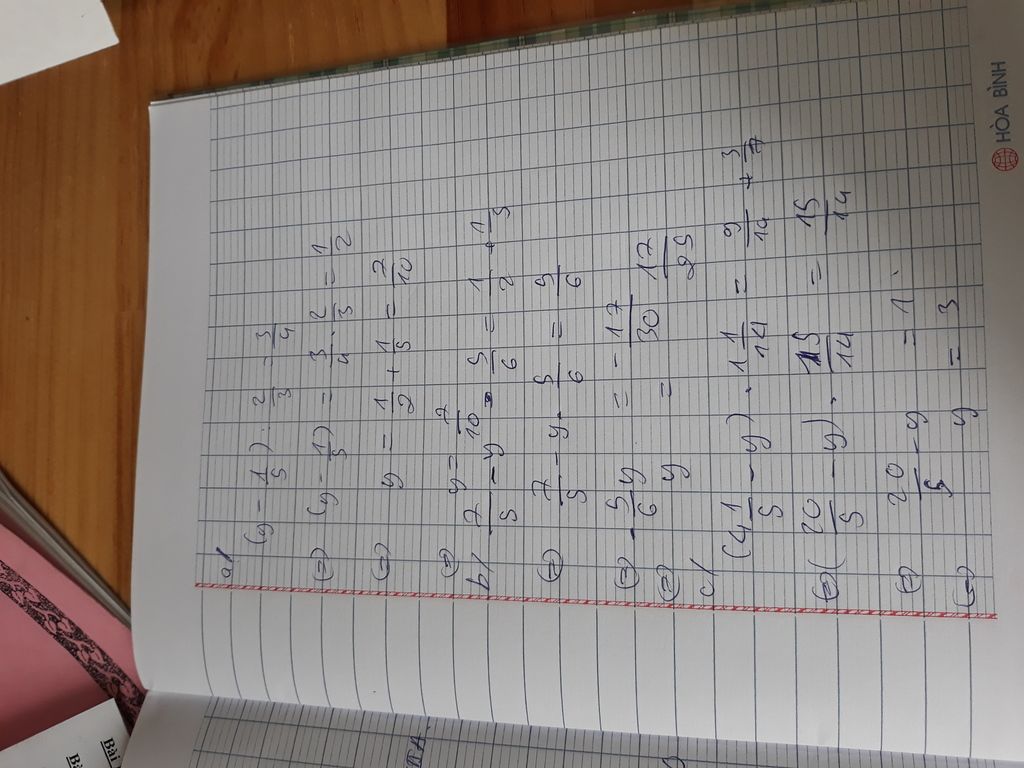 a/
(y - 1/5) . 2/3 = 3/4
(=) (y - 1/5) = 3/4 . 2/3 = 1/2
(=) y = 1/2 + 1/5 = 7/10
(=) y = 7/10
b/ 7/5 - y . 5/6 = 1/2 + 1/3
(=) 7/5 - y . 5/6 = 5/6
(=) - 5/6 y = - 17/30
(=) y = 17/25
c/
(4 1/5 - y) . 1 1/14 = 9/14 + 3/7
(=) (20/5 - y) . 15/14 = 15/14
(=) 20/5 - y = 1
(=) y = 3
HÒA BÌNH
Bài